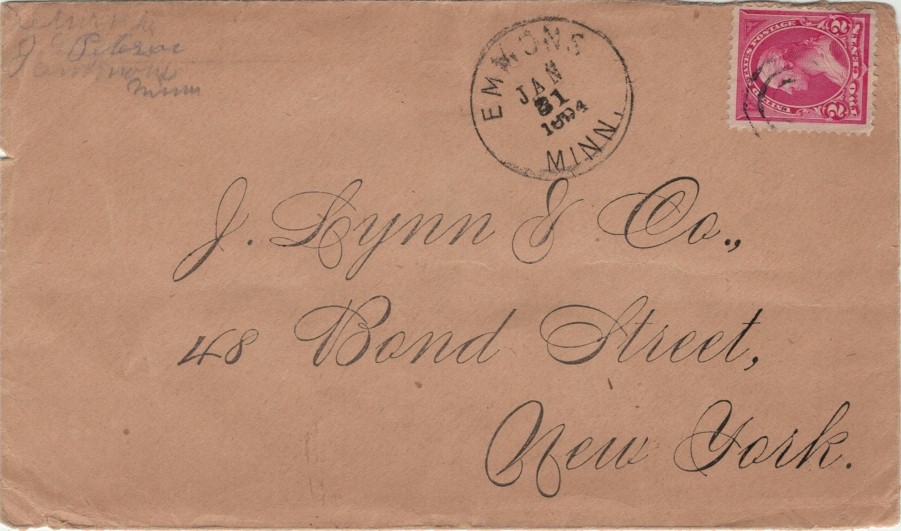 J. E. Peterson
Minn
EMMONS
JAN
31
1894
MINN.
UNITED STATES POSTAGE
2 2
TWO CENTS
J. Lynn & Co.,
48 Bond Street,
New York.